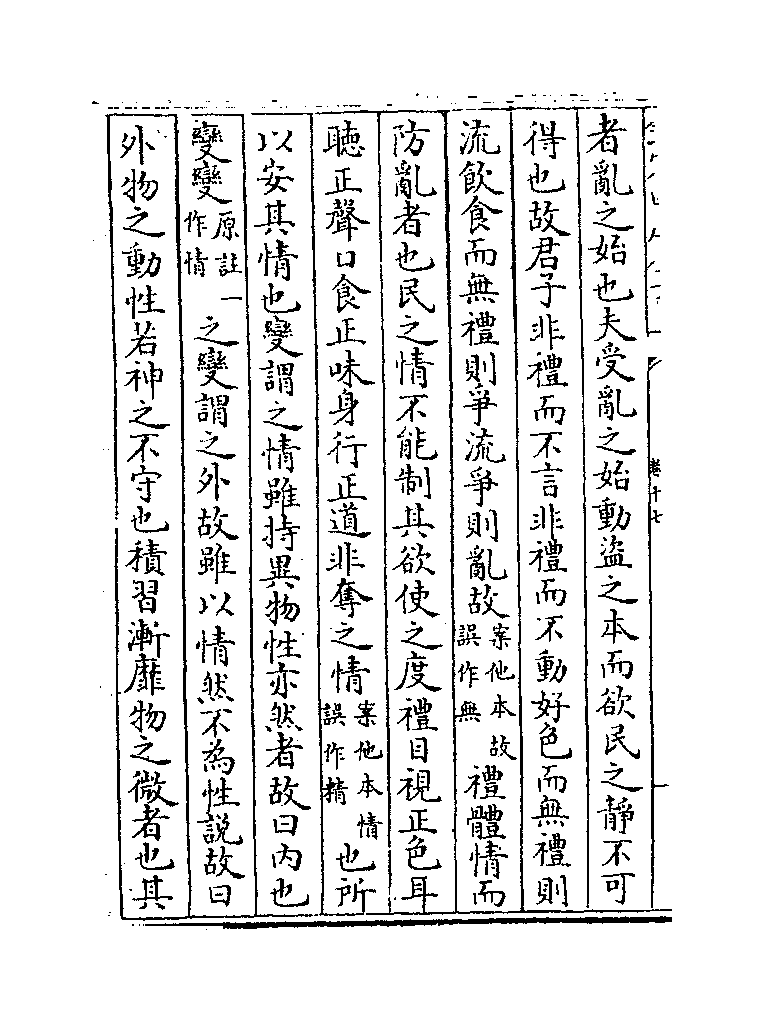 者亂之始也夫受亂之始動盜之本而欲民之靜不可
得也故君子非禮而不言非禮而不動好色而無禮則
流飲食而無禮則爭流爭則亂故案他本故誤作無禮體情而
防亂者也民之情不能制其欲使之度禮目視正色耳
聽正聲口食正味身行正道非奪之情案他本情誤作精也所
以安其情也變謂之情雖持異物性亦然者故曰内也
變變原註一作情之變謂之外故雖以情然不為性說故曰
外物之動性若神之不守也積習漸靡物之微者也其
卷十七